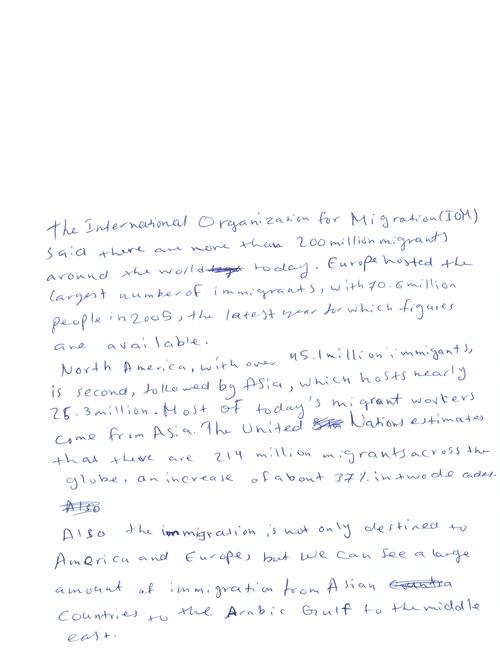 the International Organization for Migration (IOM)
said there are more than 200 million migrants
around the world today. Europe hosted the
largest number of immigrants, with 70.6 million
people in 2005, the latest year for which figures
are available.
North America, with over 45.1 million immigants,
is second, followed by Asia, which hosts nearly
25.3 million. Most of today's migrant workers
come from Asia. The United Nations estimates
that there are 214 million migrants across the
globe, an increase of about 37% in two decades.
Also
Also the immigration is not only destined to
America and Europe, but we can see a large
amount of immigration from Asian
Countries to the Arabic Gulf to the middle
east.